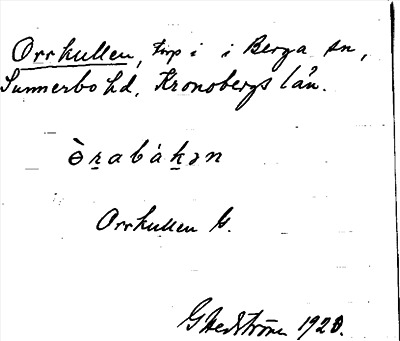 Orrkullen, torp i i Berga sn,
Sunnerbo hd, Kronobergs län.
ɵ̀ṟabákən
Orrkullen G.
G Hedström 1920.